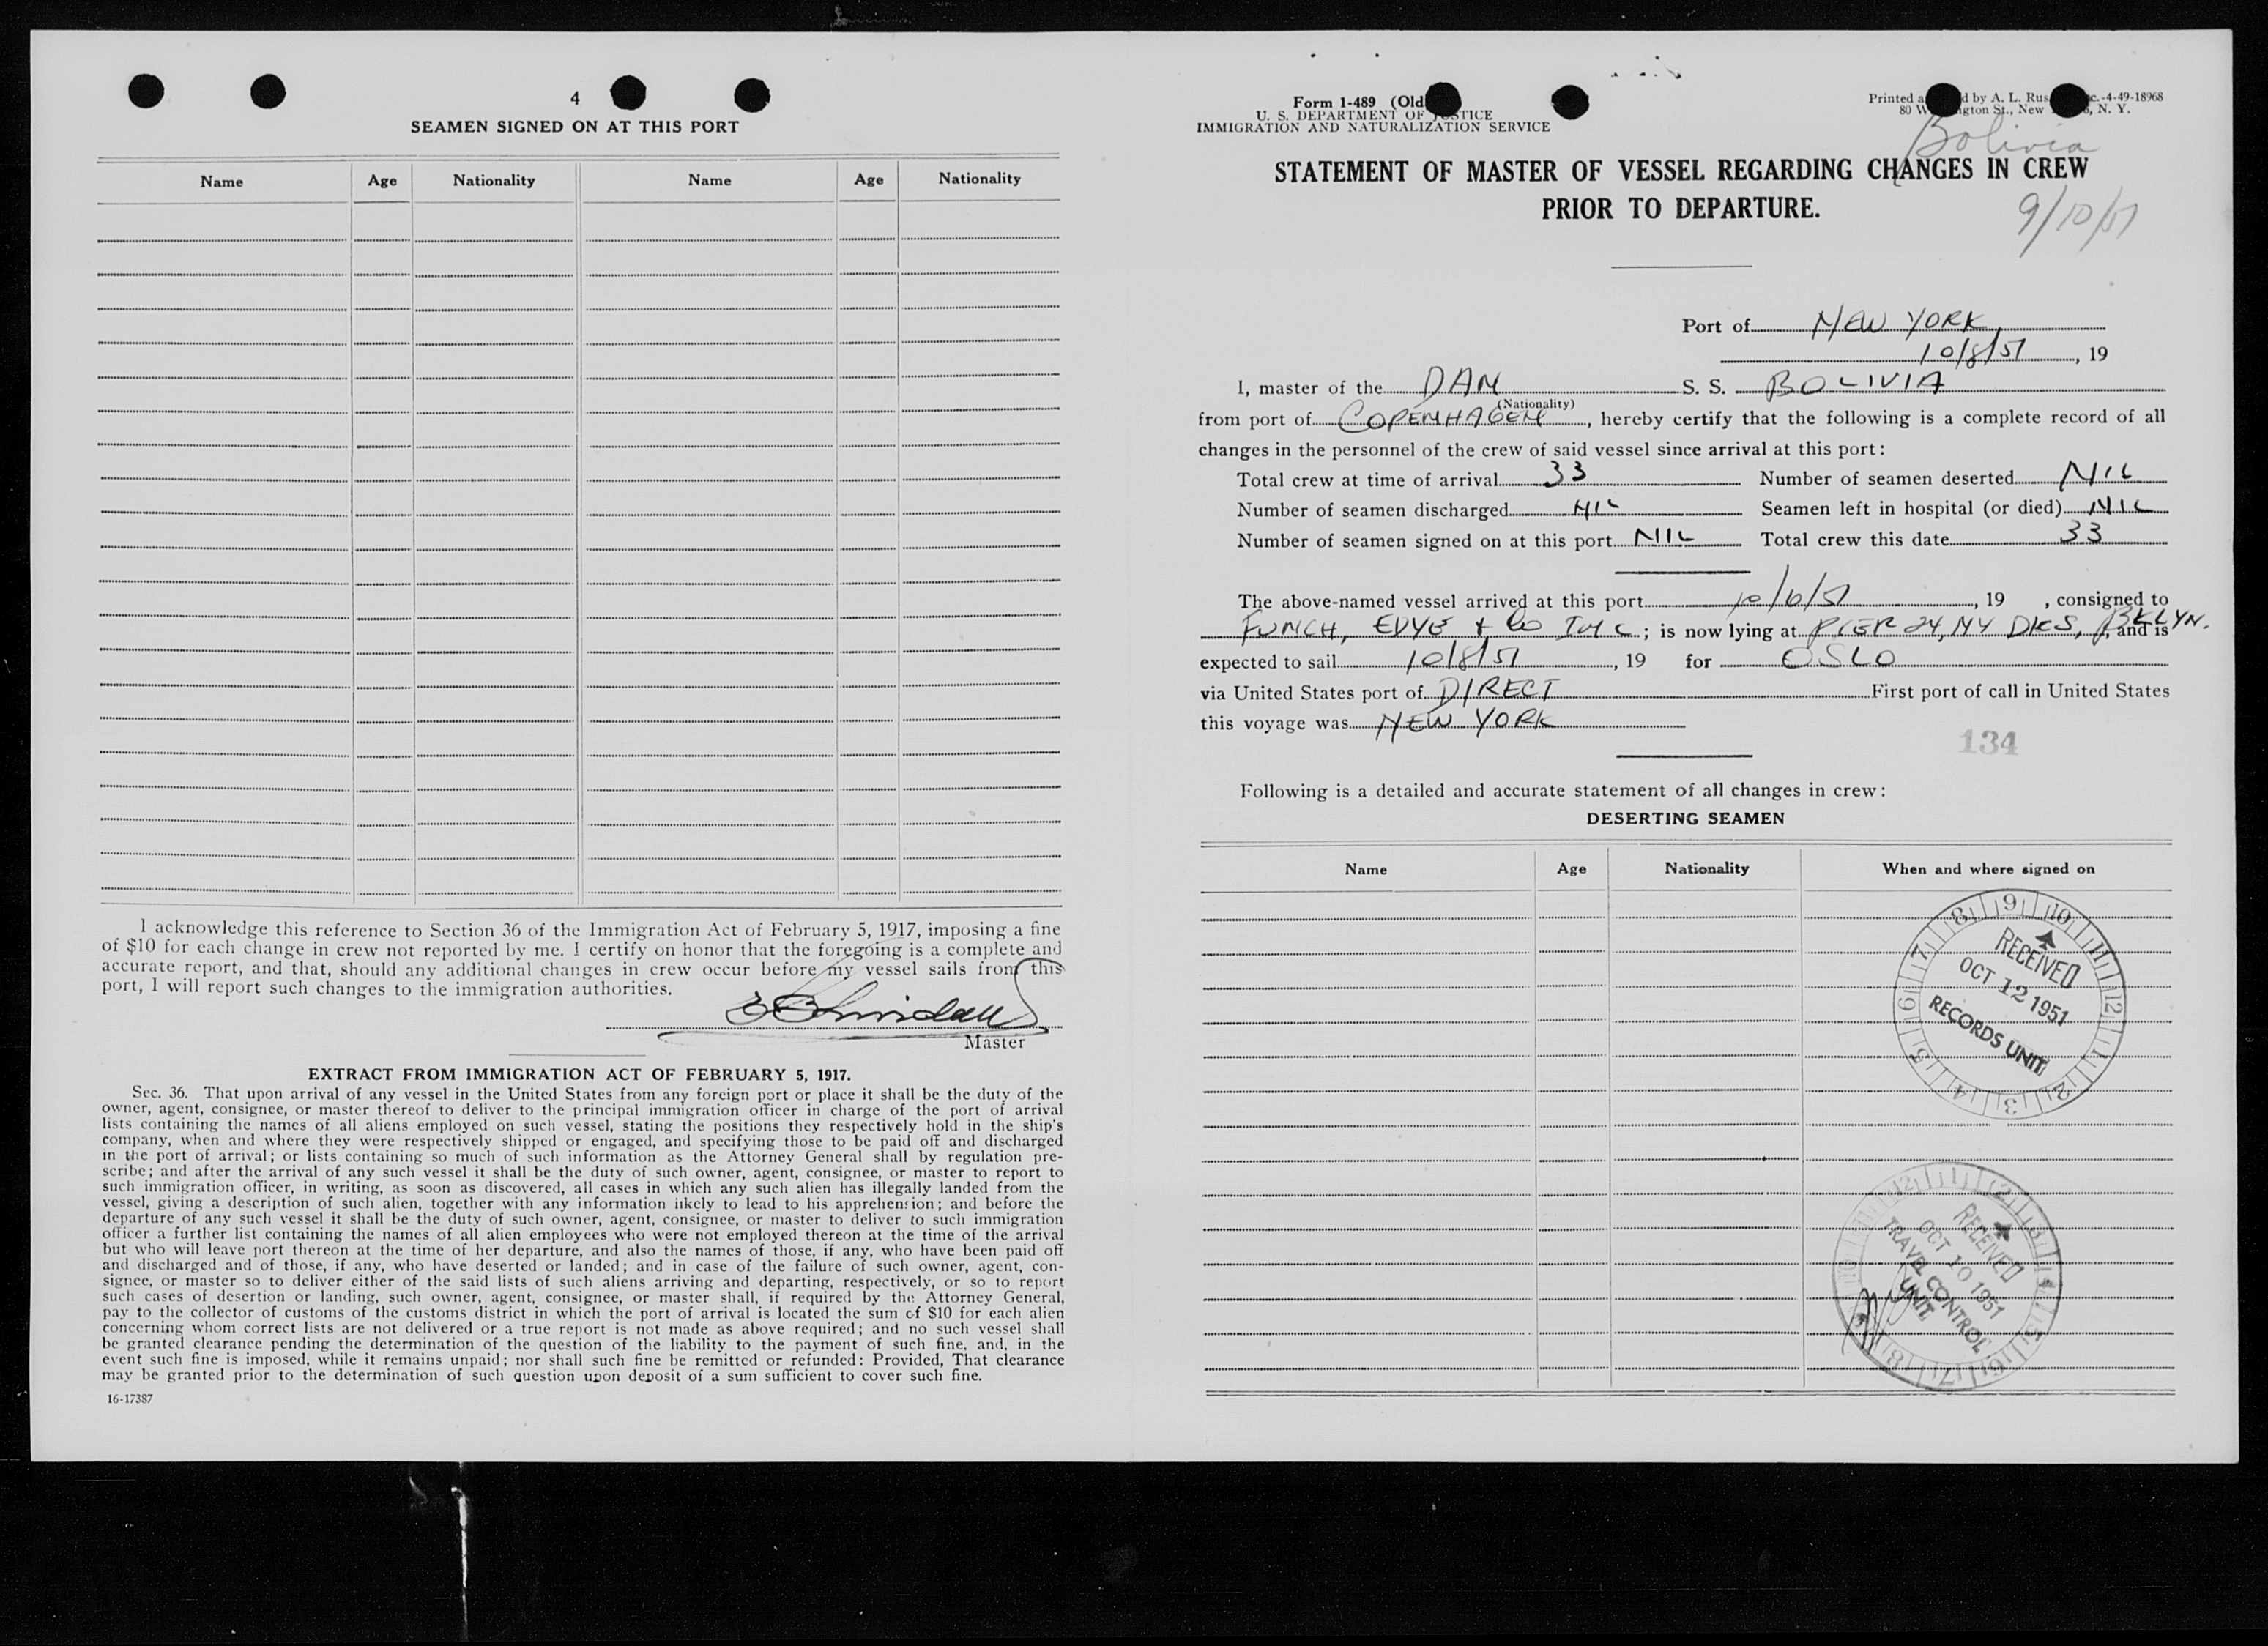 4
SEAMEN SIGNED ON AT THIS PORT
Name Age Nationality Name Age Nationality
I acknowledge this reference to Section 36 of the Immigration Act of February 5, 1917, imposing a fine
of $10 for each change in crew not reported by me. I certify on honor that the foregoing is a complete and
accurate report, and that, should any additional changes in crew occur before my vessel sails from this
port, I will report such changes to the immigration authorities.
Master
EXTRACT FROM IMMIGRATION ACT OF FEBRUARY 5, 1917.
Sec. 36. That upon arrival of any vessel in the United States from any foreign port or place it shall be the duty of the
owner, agent, consignee, or master thereof to deliver to the principal immigration officer in charge of the port of arrival
lists containing the names of all aliens employed on such vessel, stating the positions they respectively hold in the ship's
company, when and where they were respectively shipped or engaged, and specifying those to be paid off and discharged
in the port of arrival; or lists containing so much of such information as the Attorney General shall by regulation pre-
scribe; and after the arrival of any such vessel it shall be the duty of such owner, agent, consignee, or master to report to
such immigration officer, in writing, as soon as discovered, all cases in which any such alien has illegally landed from the
vessel, giving a description of such alien, together with any information likely to lead to his apprehension; and before the
departure of any such vessel it shall be the duty of such owner, agent, consignee, or master to deliver to such immigration
officer a further list containing the names of all alien employees who were not employed thereon at the time of the arrival
but who will leave port thereon at the time of her departure, and also the names of those, if any, who have been paid off
and discharged and of those, if any, who have deserted or landed; and in case of the failure of such owner, agent, con-
signee, or master so to deliver either of the said lists of such aliens arriving and departing, respectively, or so to report
such cases of desertion or landing, such owner, agent, consignee, or master shall, if required by the Attorney General,
pay to the collector of customs of the customs district in which the port of arrival is located the sum of $10 for each alien
concerning whom correct lists are not delivered or a true report is not made as above required; and no such vessel shall
be granted clearance pending the determination of the question of the liability to the payment of such fine, and, in the
event such fine is imposed, while it remains unpaid; nor shall such fine be remitted or refunded: Provided, That clearance
may be granted prior to the determination of such question upon deposit of a sum sufficient to cover such fine.
16-17387
Form 1-489 (Old
U. S. DEPARTMENT OF JUSTICE
IMMIGRATION AND NATURALIZATION SERVICE
Printed a d by A. L. Rus c.-4-49-18968
80 W ngton St., New , N. Y.
Bolivia
STATEMENT OF MASTER OF VESSEL REGARDING CHANGES IN CREW
PRIOR TO DEPARTURE.
9/10/51
Port of NEW YORK
10/8/51, 19
I, master of the DAN S. S. BOLIVIA
(Nationality)
from port of COPENHAGEN, hereby certify that the following is a complete record of all
changes in the personnel of the crew of said vessel since arrival at this port:
Total crew at time of arrival 33 Number of seamen deserted NIL
Number of seamen discharged NIL Seamen left in hospital (or died) NIL
Number of seamen signed on at this port NIL Total crew this date 33
The above-named vessel arrived at this port 10/6/51, 19 , consigned to
FUNCH, EDYE & Co INC; is now lying at PIER 24, NY DKS, BKLYN., and is
expected to sail 10/8/51, 19 for OSLO
via United States port of DIRECT First port of call in United States
this voyage was NEW YORK
134
Following is a detailed and accurate statement of all changes in crew:
DESERTING SEAMEN
Name Age Nationality When and where signed on
8 9 10 11 12 1 2 3 4 5 6 7
RECEIVED
OCT 12 1951
RECORDS UNIT
RECEIVED
OCT 10 1951
TRAVEL CONTROL
UNIT